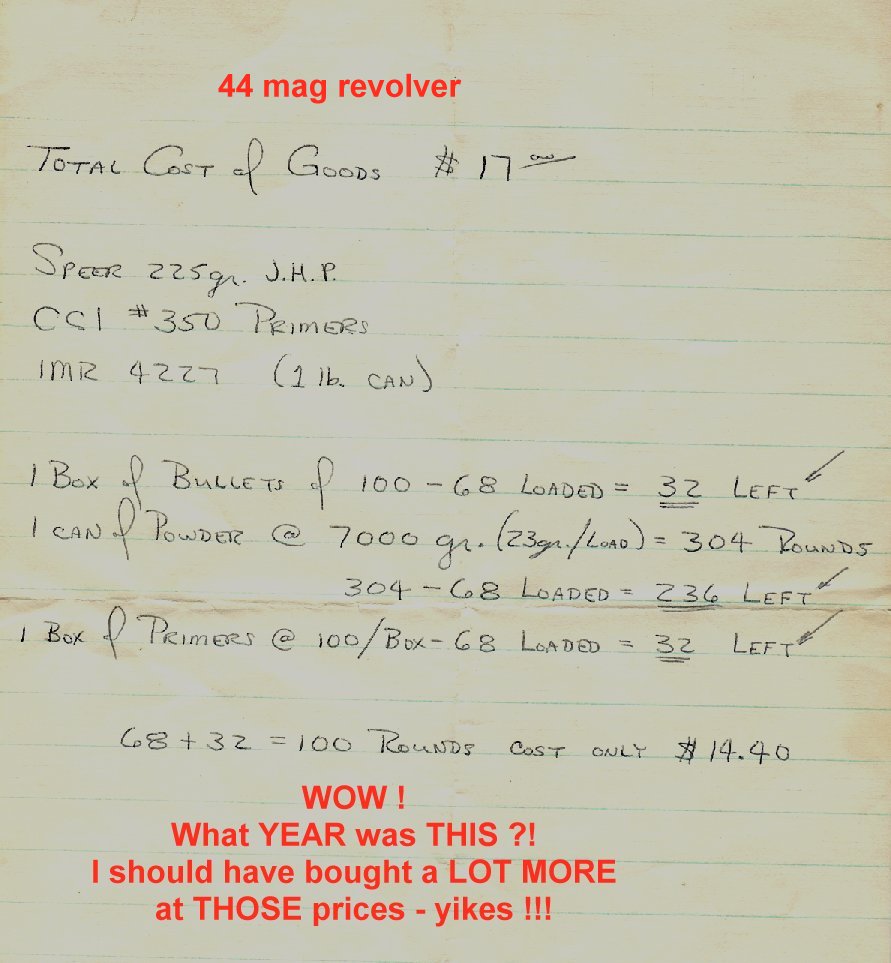 44 mag revolver
TOTAL COST of GOODS $ 17 00
SPEER 225gr. J.H.P.
CCI #350 PRIMERS
IMR 4227 (1 lb. CAN)
1 BOX of BULLETS of 100 - 68 LOADED = 32 LEFT
1 CAN of POWDER @ 7000 gr. (23gr./LOAD) = 304 ROUNDS
304 - 68 LOADED = 236 LEFT
1 BOX of PRIMERS @ 100/BOX - 68 LOADED = 32 LEFT
68 + 32 = 100 ROUNDS COST ONLY $14.40
WOW !
What YEAR was THIS ?!
I should have bought a LOT MORE
at THOSE prices - yikes !!!